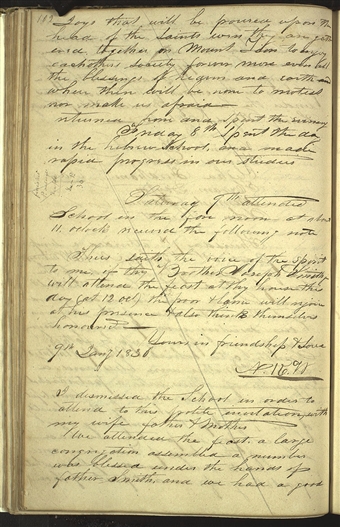 joys that will be poured upon the
head of the Saints w
together on Mount Zion to enjoy
each others society forever more even all
the blessings of heaven and earth
where there will be none to molest
nor make us afraid
returned from and spent the evening
Friday 8th Spent the day
in the hebrew School, and made
rapid progress in our studies
Saturday 9th attended
School in the fore noon at about
11. oclock received the following note
Thus saith the voice of the spirit
to me, if thy Brother Joseph Smith jr
will attend the feast at thy house this
day (at 12 ocl) the poor & lame will rejoice
at his presence & also think themselves
honoured
Yours in friendship & Love
9th Jany 1836
N. K. W
I dismissed the School in order to
attend to this polite invitation, with
my wife father & mother
We attended the feast, a large
congregation assembled a number
was blessed under the hands of
father Smith, and we had a good